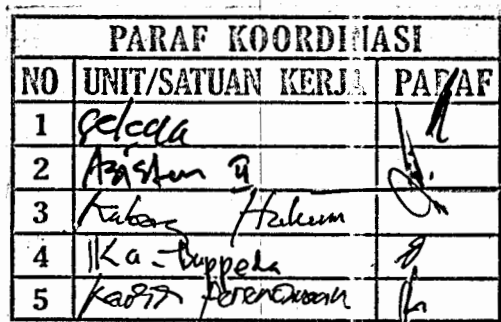 PARAF KOORDINASI
NO UNIT/SATUAN KERJA PARAF
1 Sekda
2 Asisten II
3 Kabag Hukum
4 Ka-Bappeda
5 Perencanaan